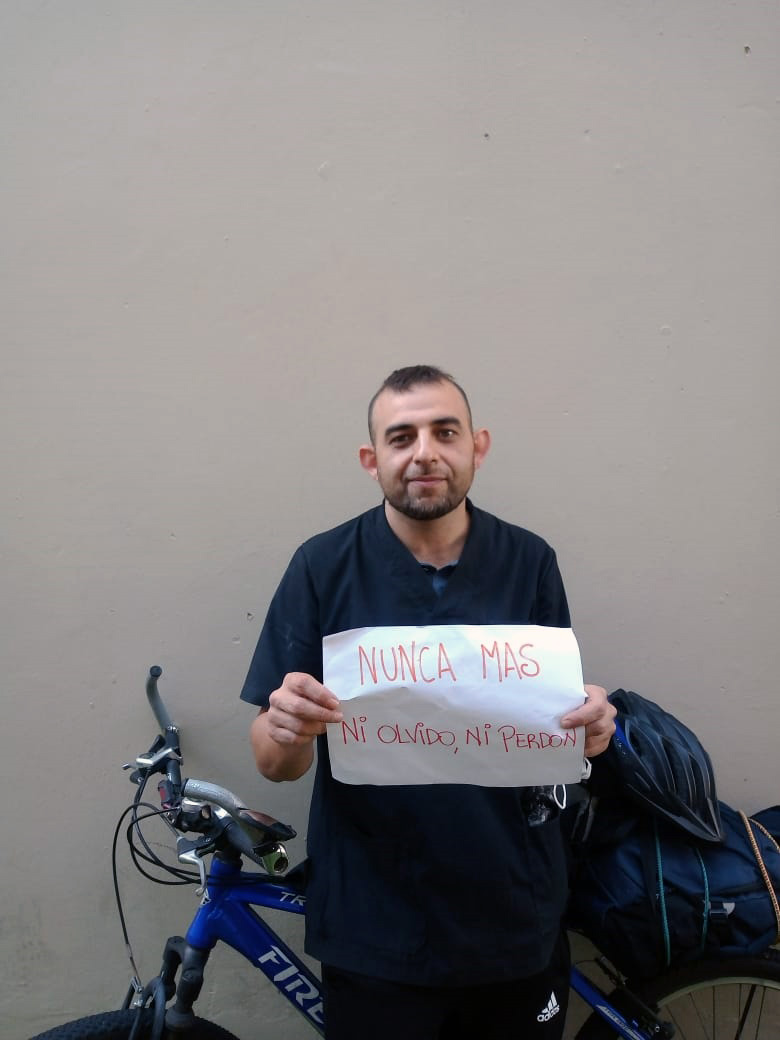 NUNCA MAS
Ni OLViDO, Ni PERDON
FIRE
TR
adidas